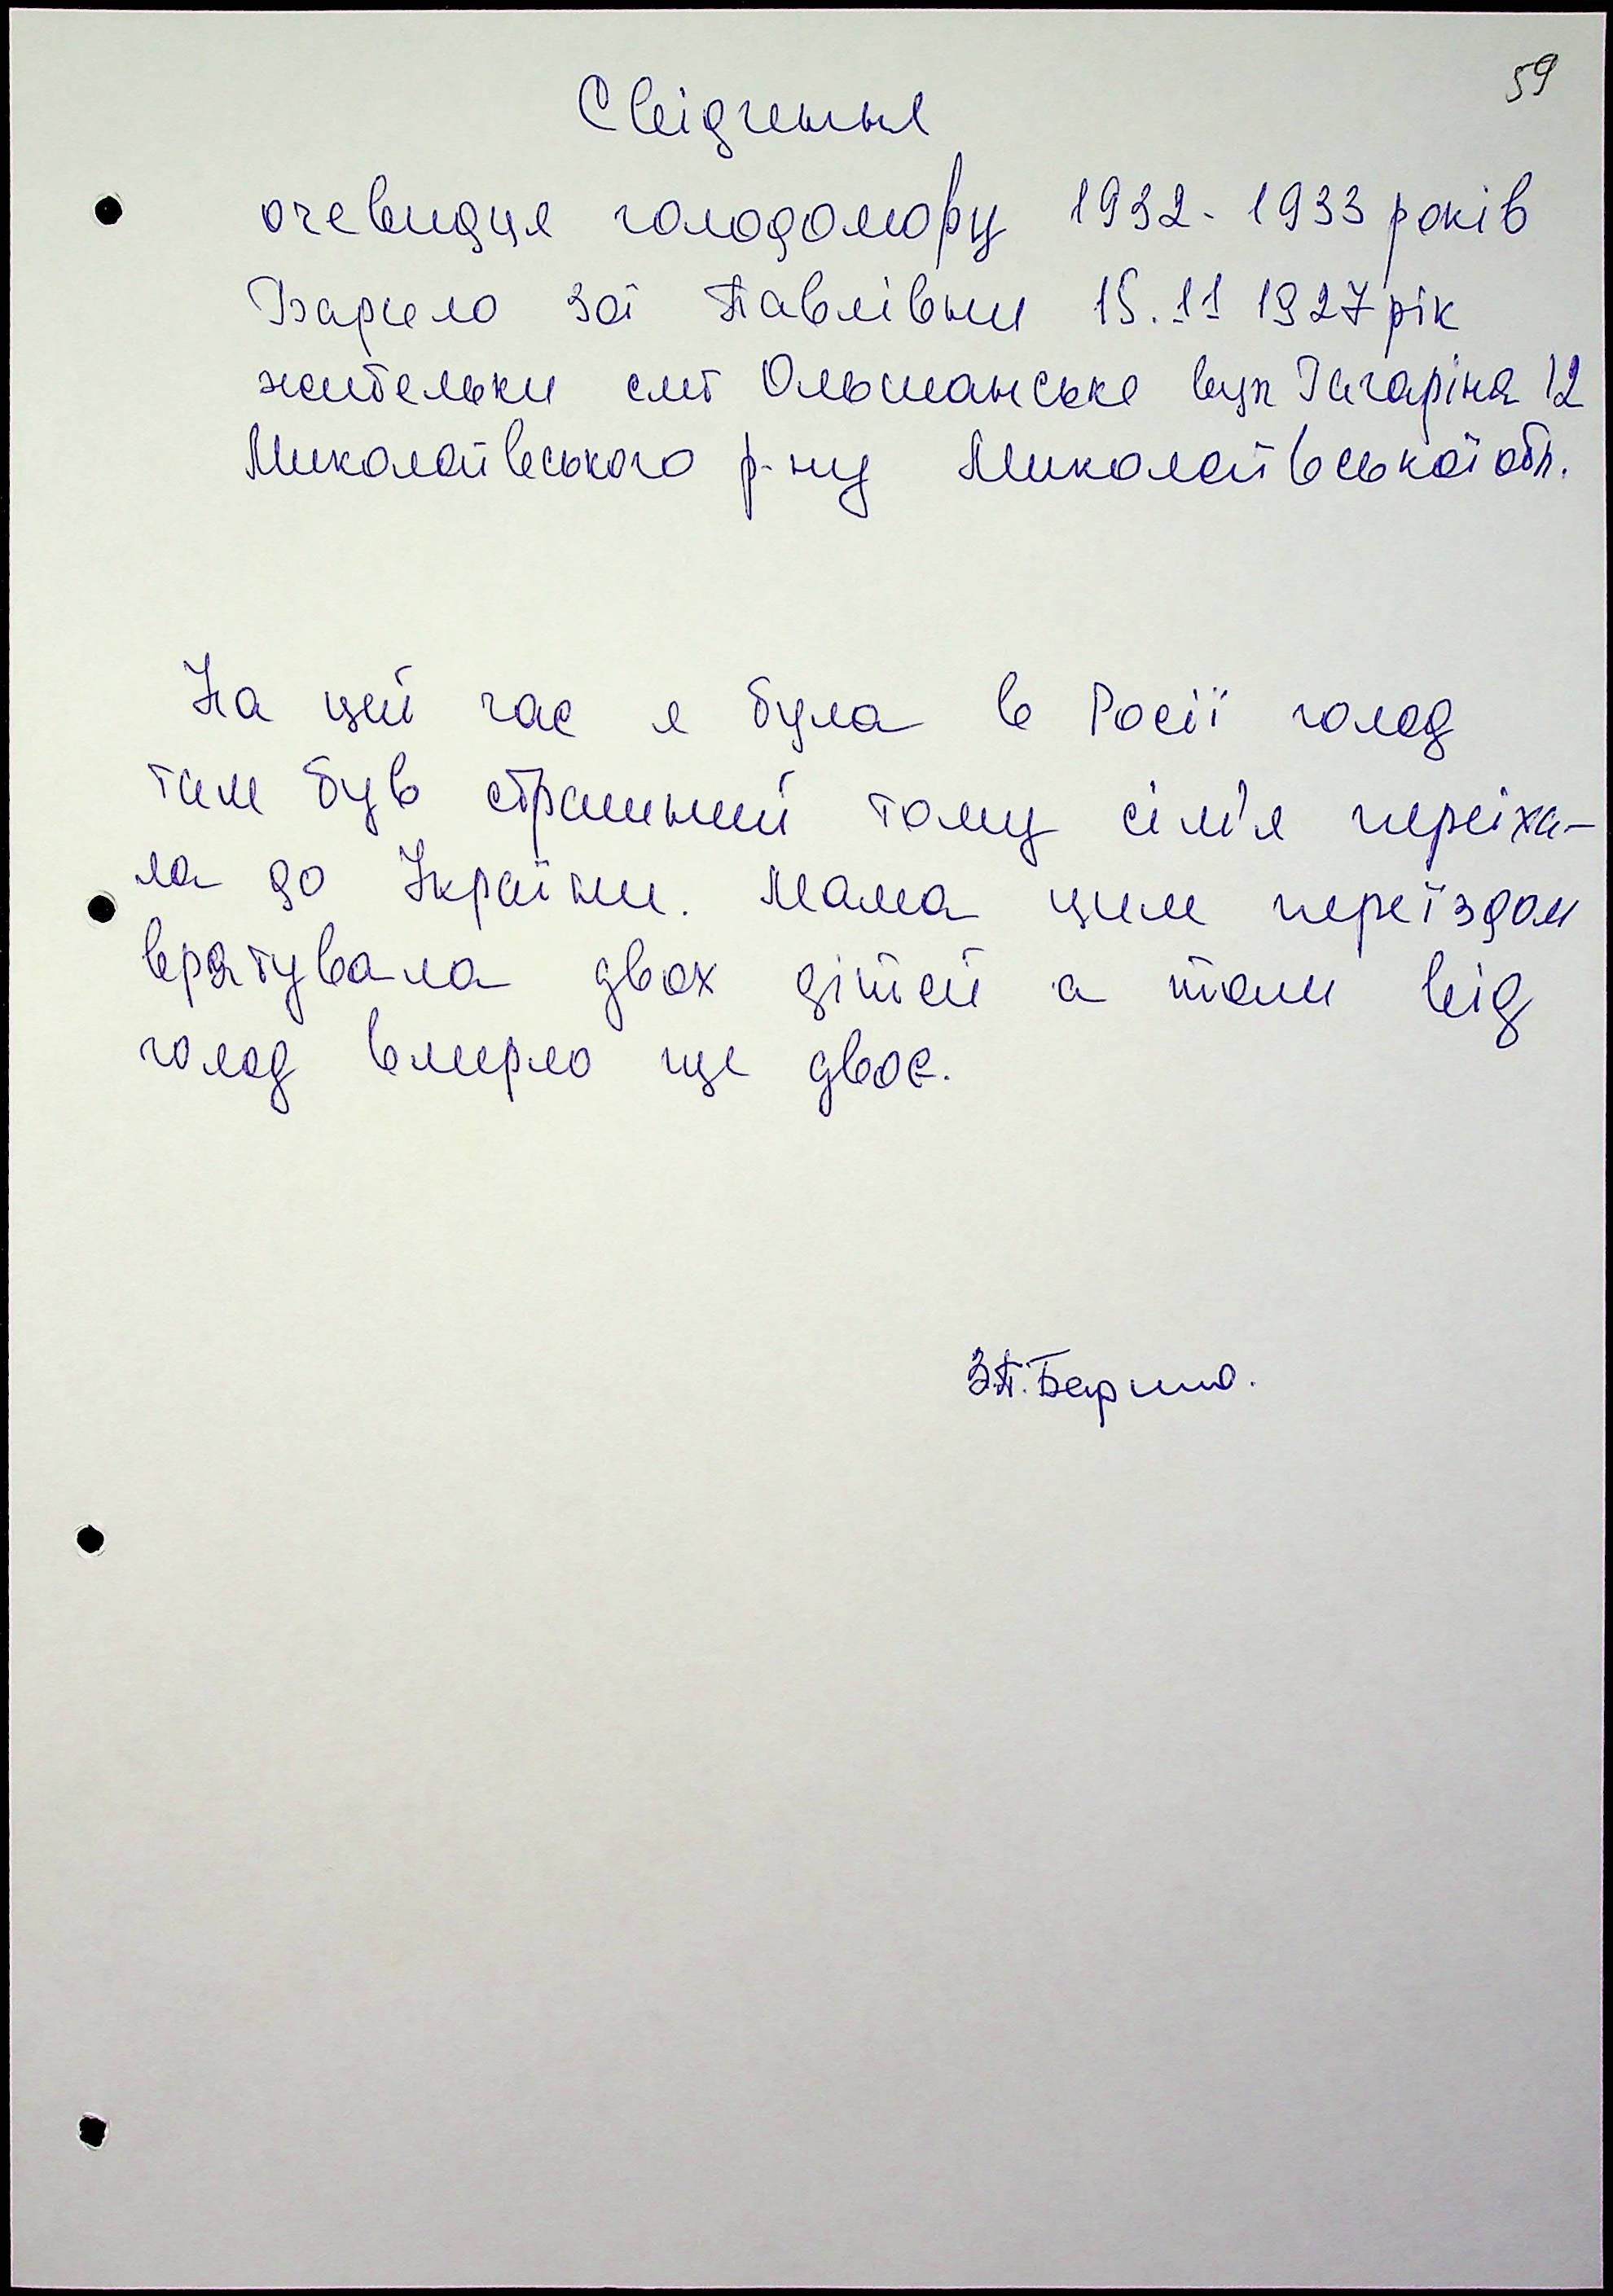 59
Свідчення
очевидця голодомору 1932-1933 років
Барило Зої Павлівни 15.11 1927 рік
жительки смт Ольшанське вул Гагаріна 12
Миколаївського р-ну Миколаївської обл.
На цей час я була в Росії голод
там був страшний тому сім'я переїха-
ла до України. Мама цим переїздом
врятувала двох дітей а там від
голод вмерло ще двоє.
З.П. Барило.